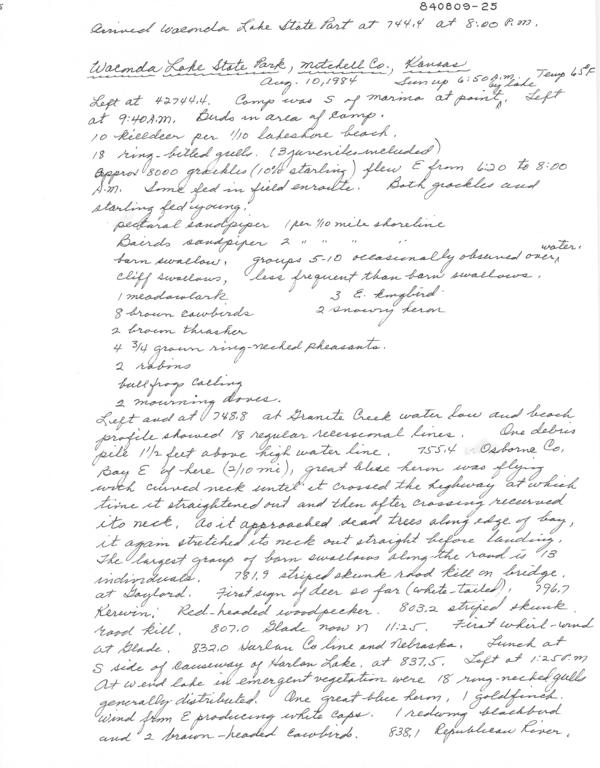 840809-25
Arrived Waconda Lake State Part at 744.4 at 8:00 P.M.
Waconda Lake State Park, Mitchell Co., Kansas
Aug. 10, 1984 Sun up 6:50 A.M. Temp 65°F
by lake
Left at 42744.4. Camp was S of marina at point. Left
at 9:40 A.M. Birds in area of camp.
10 killdeer per 1/10 lakeshore beach.
18 ring-billed gulls. (3 juveniles included)
approx 8000 grackles (10% starling) flew E from 6:20 to 8:00
A.M. Some fed in field enroute. Both grackles and
starling fed young.
pectoral sandpiper 1 per 1/10 mile shoreline
Bairds sandpiper 2 " " " "
barn swallow, groups 5-10 occasionally observed over water.
cliff swallows, less frequent than barn swallows.
1 meadowlark 3 E. kingbird
8 brown cowbirds 2 snowy heron
2 brown thrasher
4 3/4 grown ring-necked pheasants.
2 robins
bullfrogs calling
2 mourning doves.
Left and at 748.8 at Granite Creek water low and beach
profile showed 18 regular recessional lines. One debris
pile 1 1/2 feet above high water line. 755.4 Osborne Co.
Bay E of here (2/10 mi), great blue heron was flying
with curved neck until it crossed the highway at which
time it straightened out and then after crossing recurved
its neck. As it approached dead trees along edge of bay,
it again stretched its neck out straight before landing.
The largest group of barn swallows along the road is 13
individuals. 781.9 striped skunk road kill on bridge.
at Gaylord. First sign of deer so far (white-tailed), 796.7
Kerwin; Red-headed woodpecker. 803.2 striped skunk
road kill. 807.0 Glade now N 11:25. First whirl-wind
at Glade. 832.0 Harlan Co line and Nebraska. Lunch at
S side of causeway of Harlan Lake, at 837.5. Left at 1:25 P.M
At W end lake in emergent vegetation were 18 ring-necked gulls
generally distributed. One great blue heron, 1 goldfinch.
Wind from E producing white caps. 1 redwing blackbird
and 2 brown-headed cowbirds. 838.1 Republican River.